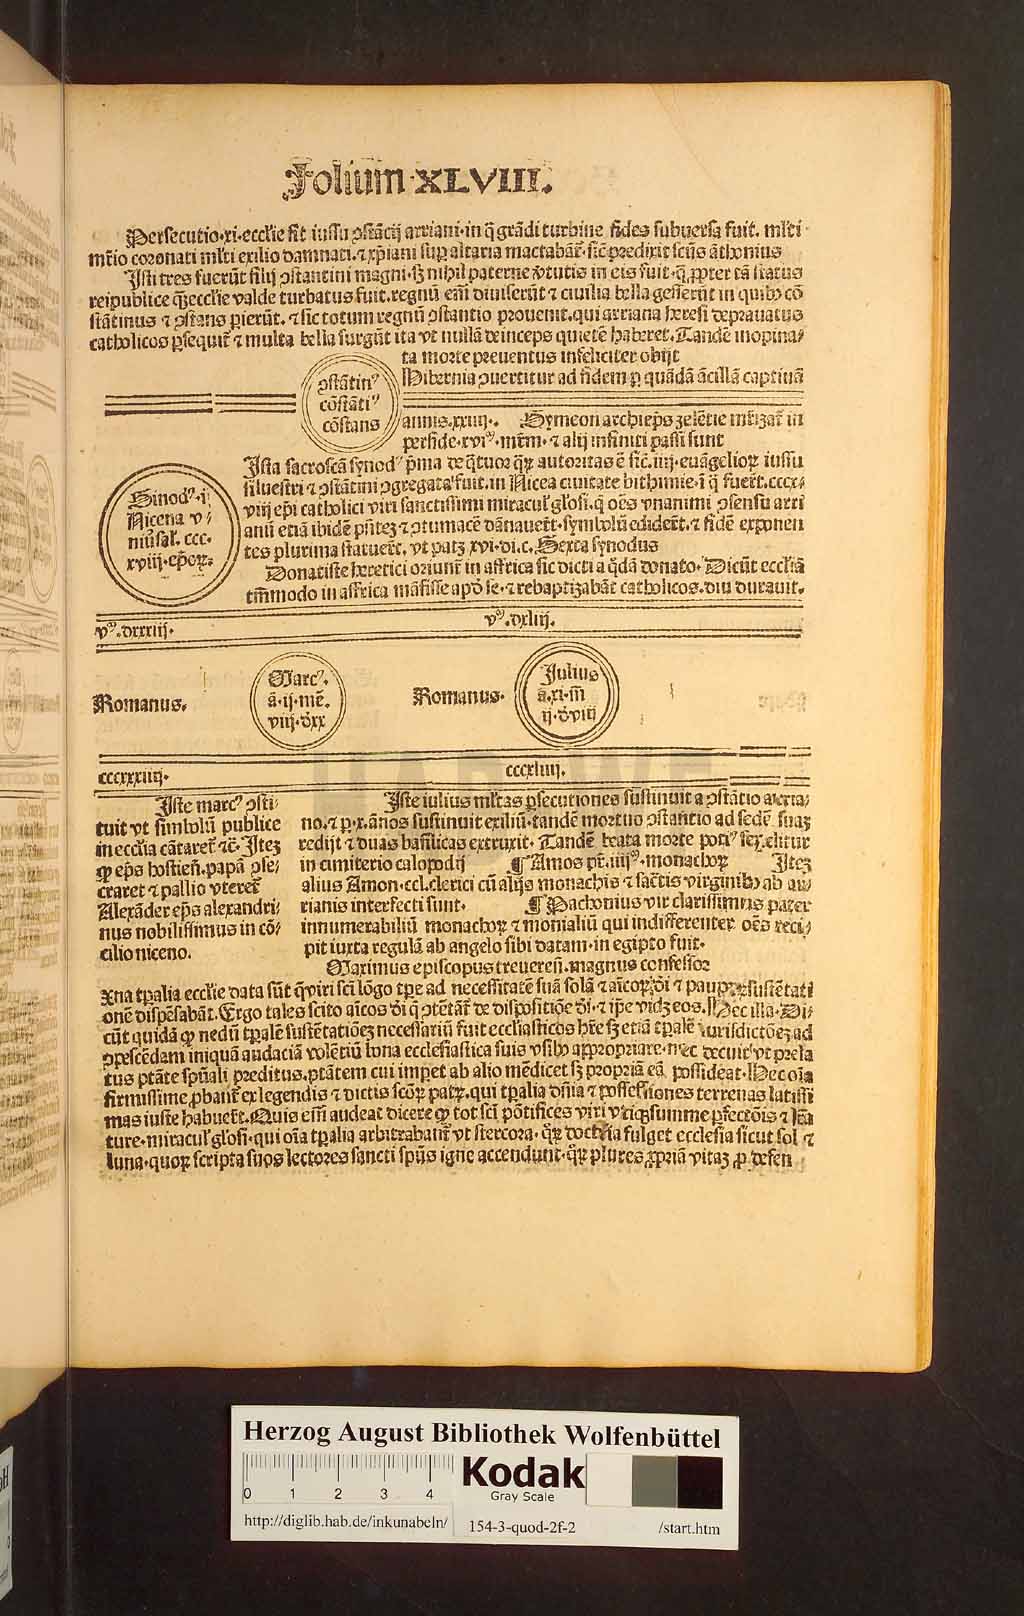 Folium ·XLVIII.
Persecutio·xi·eccl̄ie fit iussu ꝯstācij arriani·in q̄ grādi turbine fides subuersa fuit. ml̄ti·
mr̄io coronati ml̄ti exilio damnati·⁊ xp̄iani suꝑ altaria mactabāt̄·sic̄ predixit sc̄us āthonius
Isti tres fuerūt filij ꝯstantini magni·sꝫ nihil paterne v̄tutis in eis fuit·q̄ ꝓpter tā status
reipublice qꝫ eccl̄ie valde turbatus fuit.regnū em̄ diuiserūt ⁊ ciuilia bella gesserūt in quibꝰ cō
stātinus ⁊ ꝯstans ꝑierūt.⁊ sic totum regnū ꝯstantio prouenit.qui arriana heresi deprauatus
catholicos ꝑsequit̄ ⁊ multa bella surgūt ita vt nullā deinceps quietē haberet.Tandē inopina⸗
ta morte preuentus infeliciter obijt
Hibernia ꝯuertitur ad fidem ꝑ quādā ācillā captiuā
ꝯstātinꝰ
cōstātiꝰ
cōstans
annis.xxiiij·. Symeon archiep̄s zelētie mr̄izat̄ in
perside·xviꝰ·mr̄m·⁊ alij infiniti passi sunt
Sinodꝰ·i·
Nicena v⸗
niūsal̄. ccc.
xviij·ep̄oꝝ·
Ista sacroscā synodꝰ p̄ma de q̄tuor qꝝ autoritas ē sic̄.iiij·euāgelioꝝ iussu
siluestri ⁊ ꝯstātini ꝯgregata fuit.in Nicea ciuitate bithinie·ī q̄ fuer̄t.cccx⸗
viij ep̄i catholici viri sanctissimi miracul̄ gl̄osi.q̄ oēs vnanimi ꝯsensu arri
anū etiā ibidē pn̄tez ⁊ ꝯtumacē dānauer̄t·symbolū edider̄t.⁊ fidē exponen
tes plurima statuer̄t. vt patꝫ xvi·di.c.Sexta synodus
Donatiste heretici oriunt̄ in affrica sic dicti a q̄dā donato·Dicūt eccl̄iā
tm̄modo in affrica māsisse apō se·⁊ rebaptizabāt catholicos.diu durauit.
vᵐ.dxxxiij· vᵐ.dxliij.
Romanus.
Marcꝰ.
ā·ij·mē.
viij·d̄xx
Romanus·
Julius
ā.xi·m̄
ij·d̄viij
cccxxxiiij· cccxliiij.
Iste marcꝰ ꝯsti⸗
tuit vt simbolū publice
in eccl̄ia cātaret̄ ⁊c̄·Itez
ꝙ ep̄s hostien̄.papā ꝯse⸗
craret ⁊ pallio vteret̄
Alexāder ep̄s alexandri⸗
nus nobilissimus in cō⸗
cilio niceno.
Iste iulius ml̄tas ꝑsecutiones sustinuit a ꝯstātio arria⸗
no.⁊ ꝑ·x·ānos sustinuit exiliū·tandē mortuo ꝯstantio ad sedē suaꝫ
redijt ⁊ duas basilicas extruxit·Tandē beata morte potiꝰ sepelitur
in cimiterio calopodij ¶ Amos pr̄.iiijꝰ·monachoꝝ Itez
alius Amon·ccl.clerici cū alijs monachis ⁊ sac̄tis virginibꝰ ab ar⸗
rianis interfecti sunt· ¶ Pachonius vir clarissimus pater
innumerabiliū monachoꝝ ⁊ monialiū qui indifferenter oēs reci⸗
pit iuxta regulā ab angelo sibi datam·in egipto fuit·
Maximus episcopus treueren̄.magnus confessor
xna tꝑalia eccl̄ie data sūt q̄ viri sc̄i lōgo tꝑe ad necessitatē suā solā ⁊ aīcoꝝ d̄i ⁊ pauꝑꝝ sustētati
onē dispēsabāt.Ergo tales scito aīcos d̄i q̄ ꝯtētāt̄ de dispositiōe d̄i·⁊ ip̄e vidꝫ eos.Hec illa·Di⸗
cūt quidā ꝙ nedū tꝑalē sustētatiōeꝫ necessariū fuit eccl̄iasticos hr̄e sꝫ etiā tꝑalē iurisdictōeꝫ ad
ꝯpescēdam iniquā audaciā volētiū bona ecclesiastica suis vsibꝰ appropriare·nec decuit vt prela
tus ptāte spūali preditus.ptātem cui imꝑet ab alio mēdicet sꝫ propriā eā possideat·Hec oīa
firmissime ꝓbant̄ ex legendis ⁊ dictis scōꝝ patꝝ.qui tꝑalia dn̄ia ⁊ possessiones terrenas latissi
mas iuste habuer̄t.Quis em̄ audeat dicere ꝙ tot sc̄i pōtifices viri vtiqꝫ summe ꝑfectōis ⁊ lr̄a
ture·miracul̄ gl̄osi·qui oīa tꝑalia arbitrabant̄ vt stercora·qꝝ doctrīa fulget ecclesia sicut sol ⁊
luna·quoꝝ scripta suos lectores sancti spūs igne accendunt·qꝝ plures ꝓpriā vitaꝫ ꝓ defen
Herzog August Bibliothek Wolfenbüttel
0 1 2 3 4
Kodak
Gray Scale
http://diglib.hab.de/inkunabeln/ 154-3-quod-2f-2 /start.htm